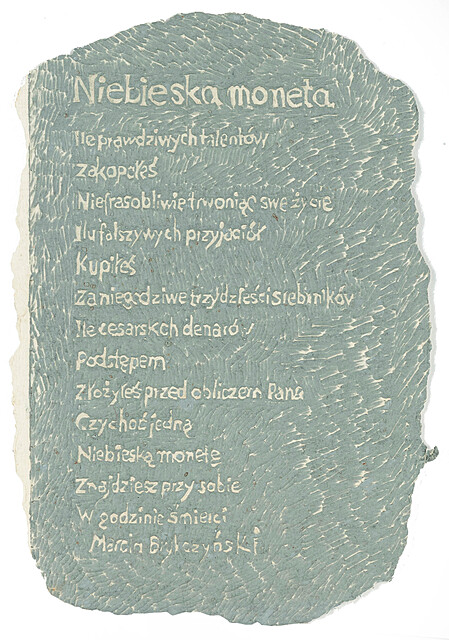 Niebieska moneta
Ile prawdziwych talentów
Zakopałeś
Niefrasobliwie trwoniąc swe życie
Ilu fałszywych przyjaciół
Kupiłeś
Za niegodziwe trzydzieści srebrników
Ile cesarskch denarów
Podstępem
Złożyłeś przed obliczem Pana
Czy choć jedną
Niebieską monetę
Znajdziesz przy sobie
W godzinie śmierci
Marcin